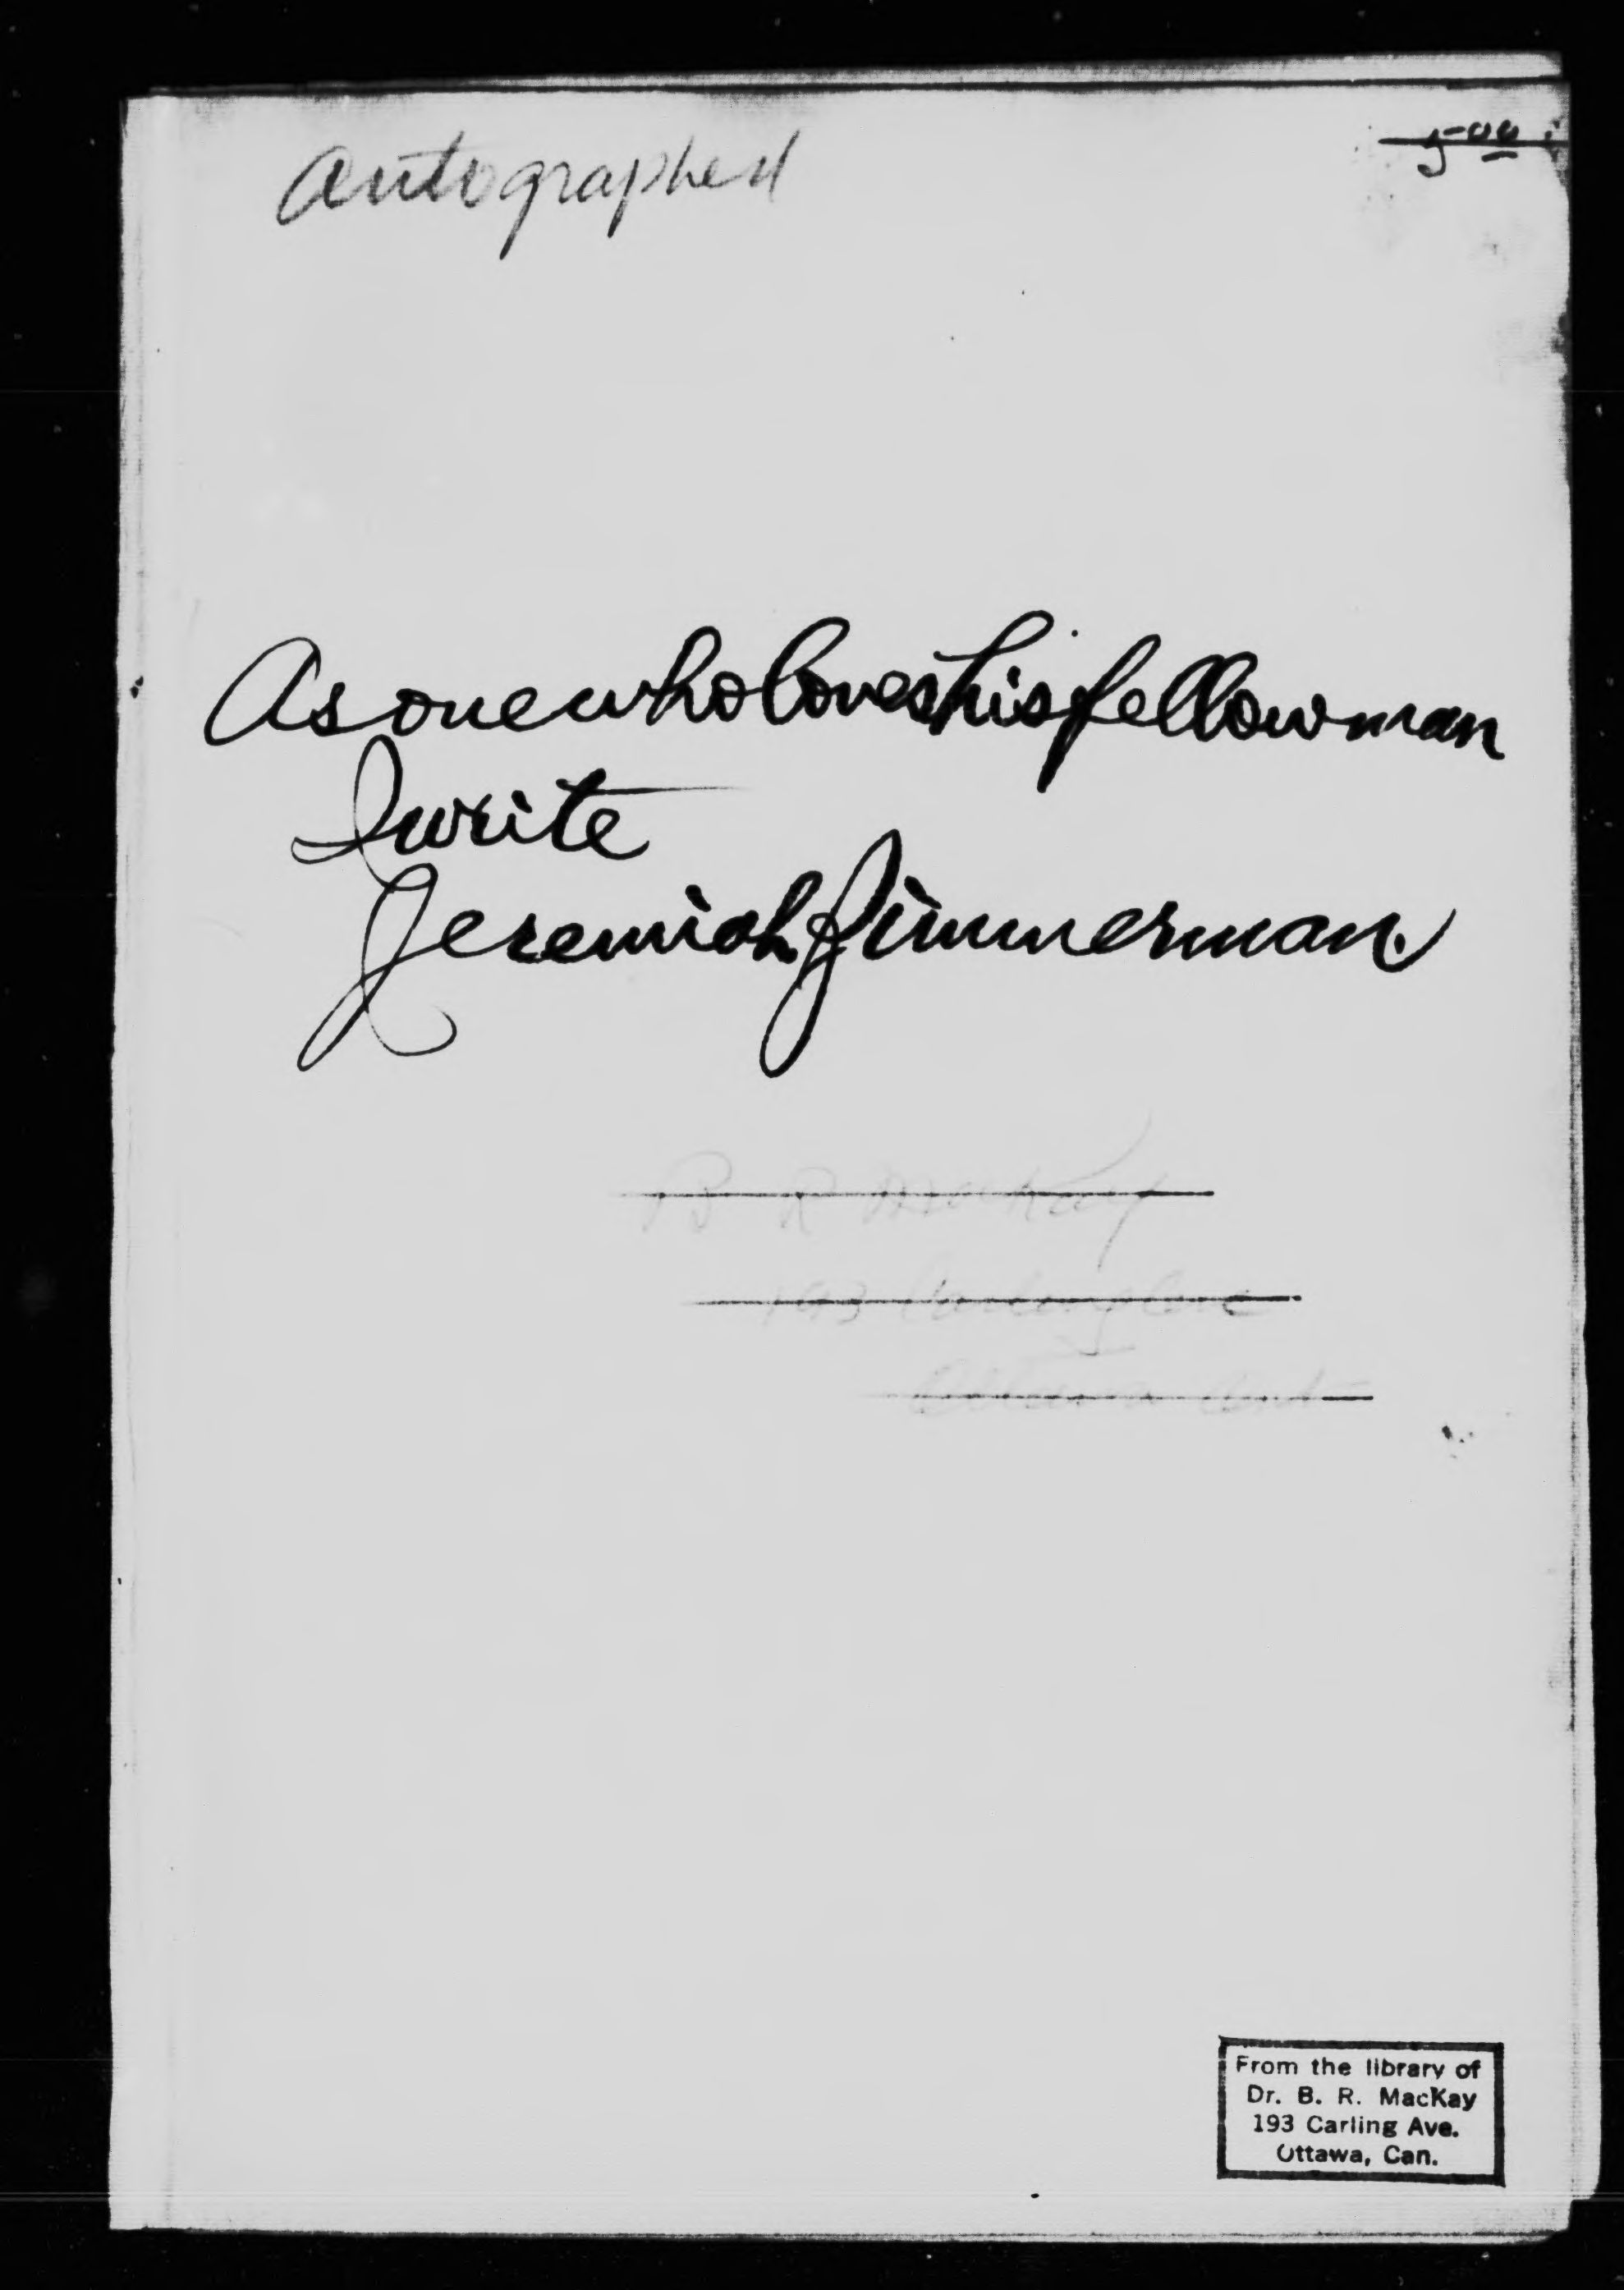 autographed
5-00
As one who loves his fellowman
I write
Jeremiah Zimmerman.
B R MacKay
193 Carling Ave
Ottawa Ont
From the library of
Dr. B. R. MacKay
193 Carling Ave.
Ottawa, Can.